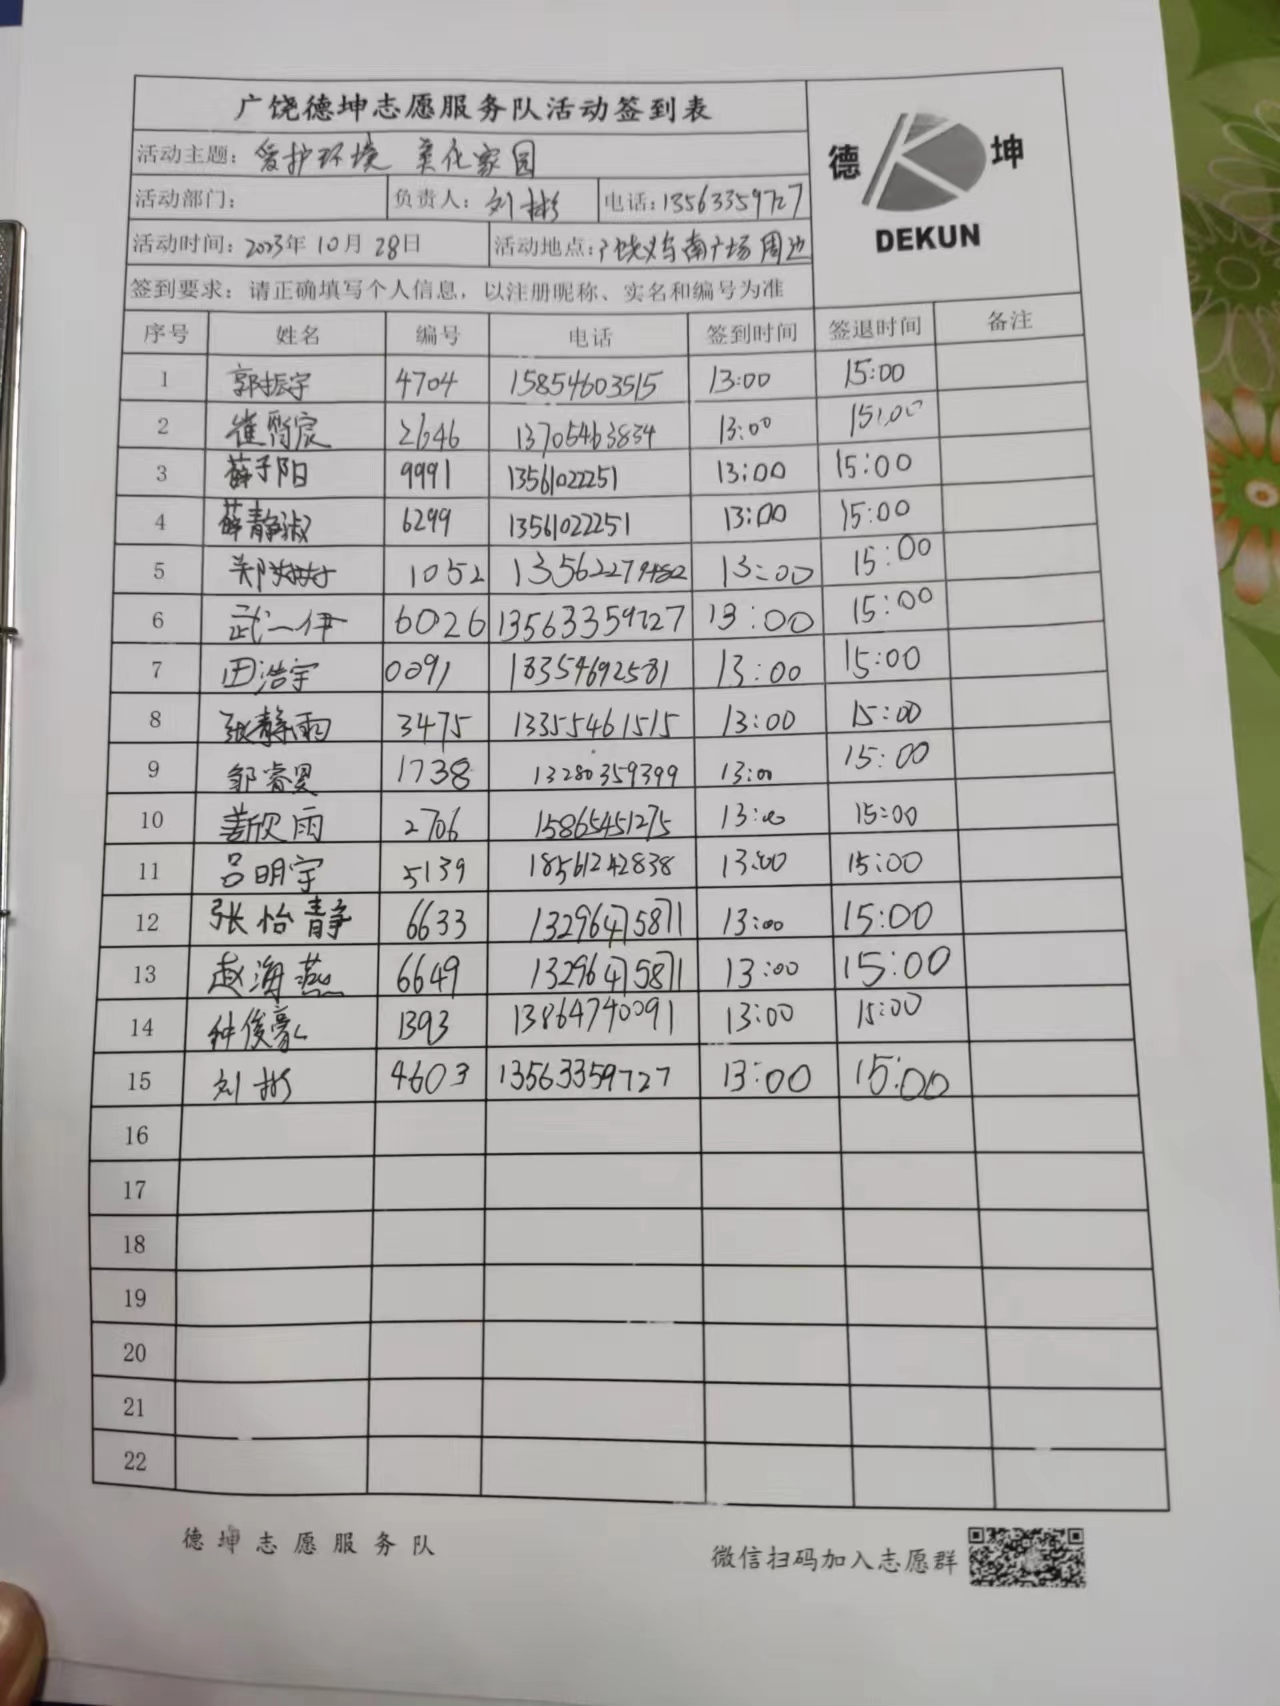 广饶德坤志愿服务队活动签到表
德 坤
DEKUN
活动主题：爱护环境 美化家园
活动部门： 负责人：刘彬 电话：13563359727
活动时间：2023年10月28日 活动地点：广饶义乌南广场周边
签到要求：请正确填写个人信息，以注册昵称、实名和编号为准
序号 姓名 编号 电话 签到时间 签退时间 备注
1 郭振宇 4704 15854603515 13:00 15:00
2 崔 2646 13705463834 13:00 15:00
3 薛予阳 9991 13561022251 13:00 15:00
4 薛静淑 6299 13561022251 13:00 15:00
5 1052 13562279482 13:00 15:00
6 武一伊 6026 13563359727 13:00 15:00
7 田浩宇 0091 18354692581 13:00 15:00
8 张静雨 3475 13355461515 13:00 15:00
9 邹睿 1738 13280359399 13:00 15:00
10 姜欣雨 2706 15865451275 13:00 15:00
11 吕明宇 5139 18561242838 13:00 15:00
12 张怡静 6633 13296475871 13:00 15:00
13 赵海燕 6649 13296475871 13:00 15:00
14 钟俊豪 1393 13864740091 13:00 15:00
15 刘彬 4603 13563359727 13:00 15:00
16
17
18
19
20
21
22
德坤志愿服务队
微信扫码加入志愿群